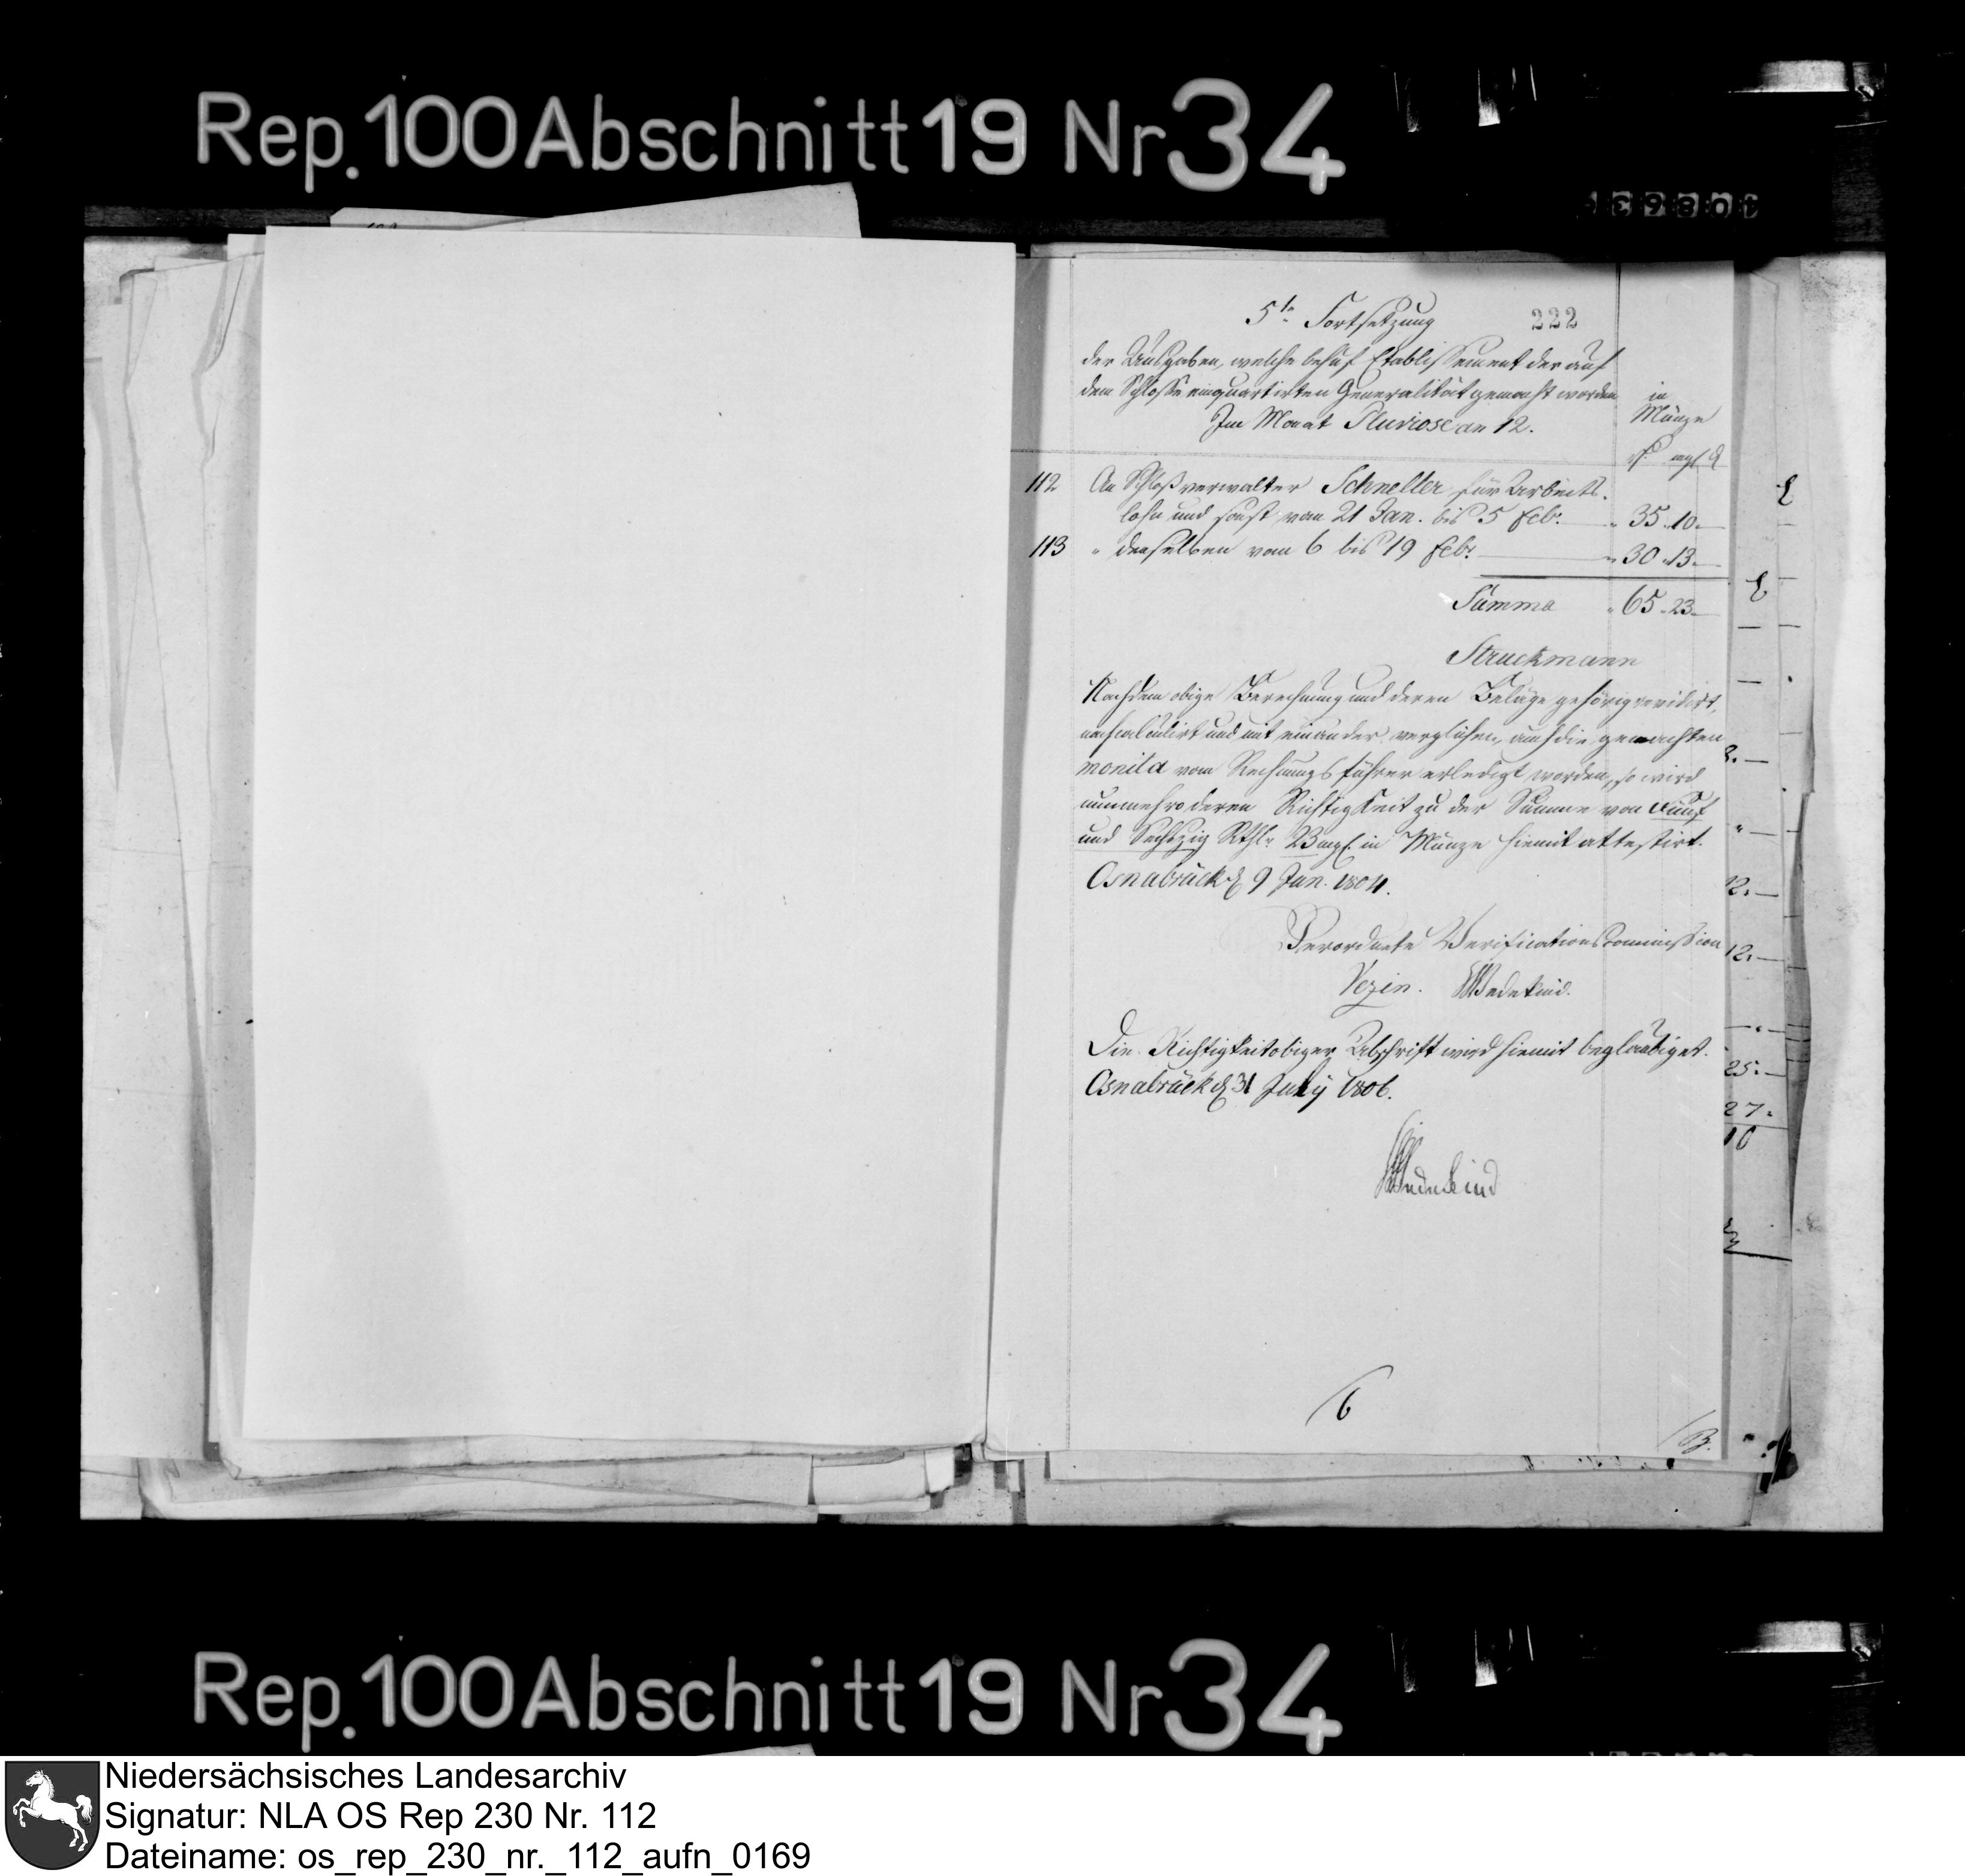 Rep. 100 Abschnitt 19 Nr 34
5te Fortsetzung 222
der Ausgaben, welche behuf Etablissement der auf
dem Schlosse einquartirten Generalität gemacht worden
Im Monat Pluviose an 12.
in
Münze
mgl. d
112 An Schloßverwalter Schneller für Arbeits-
lohn und sonst von 21 Jan. bis 5 Feb. 35 10
113 " denselben vom 6 bis 19 Feb. 30 13
Summa 65 23
Struckmann
Nachdem obige Berechnung und deren Beläge gehörig revidirt,
nachcalculirt und mit einander verglichen, auch die gemachten
monita vom Rechnungsführer erledigt worden, so wird
nunmehro deren Richtigkeit zu der Summe von Fünf
und Sechszig Rthlr 23 mgl. in Münze hiemit attestirt.
Osnabrück d 9 Jun. 1804.
Verordnete Verifications Commission
Vezin. Wedekind.
Die Richtigkeit obiger Abschrift wird hiemit beglaubiget.
Osnabrück d 31 July 1806.
Wedekind
6
12.
12.
25.
27.
10
Rep. 100 Abschnitt 19 Nr 34
Niedersächsisches Landesarchiv
Signatur: NLA OS Rep 230 Nr. 112
Dateiname: os_rep_230_nr._112_aufn_0169